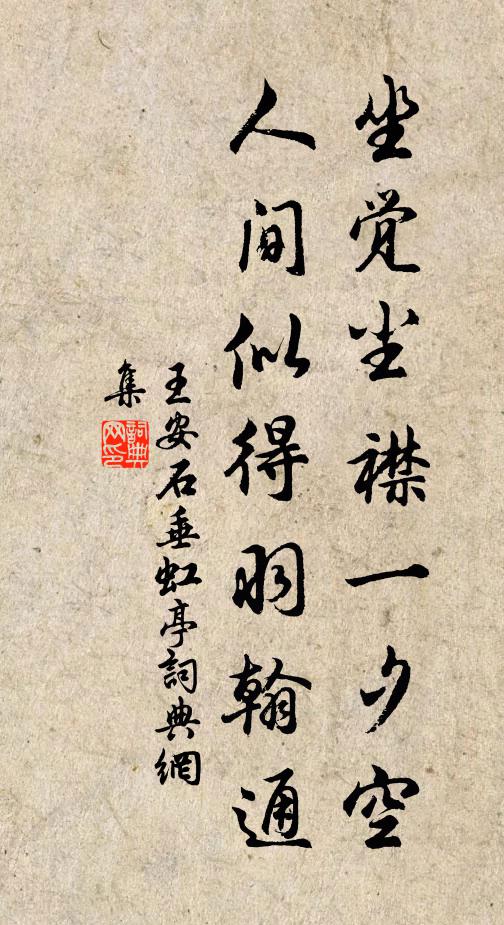 坐觉尘襟一夕空
人间似得羽翰通
王安石垂虹亭詞典網
集
詞典網印